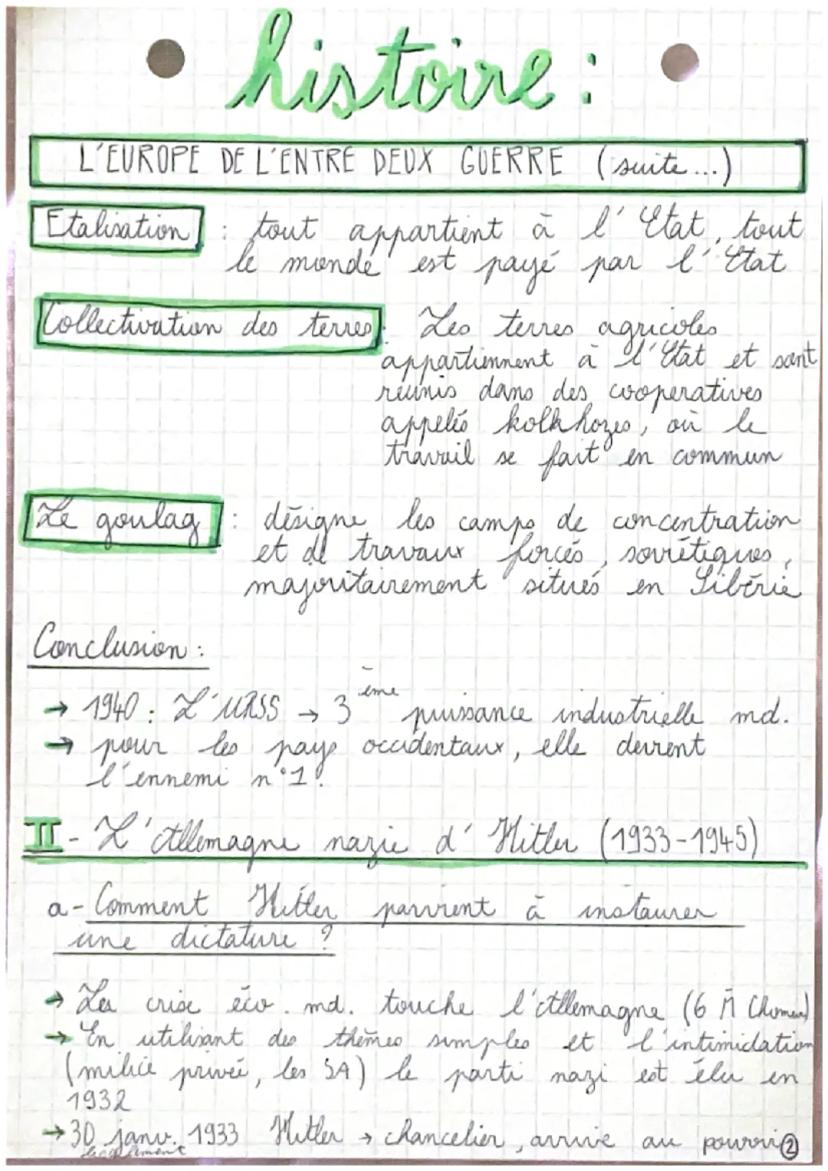 histoire :
L'EUROPE DE L'ENTRE DEUX GUERRE (suite...)
Etalisation : tout appartient à l'Etat, tout
le monde est payé par l'Etat
Collectivation des terres : Les terres agricoles
appartiennent à l'Etat et sont
réunis dans des cooperatives
appelés kolkhozes, où le
travail se fait en commun
Le goulag : désigne les camps de concentration
et de travaux forcés, soviétiques,
majoritairement situés en Sibérie
Conclusion :
→ 1940 : L'URSS → 3ème puissance industrielle md.
→ pour les pays occidentaux, elle devient
l'ennemi n°1.
II - L'Allemagne nazie d'Hitler (1933-1945)
a - Comment Hitler parvient à instaurer
une dictature ?
→ La crise éco. md. touche l'Allemagne (6 M Chomeurs)
→ En utilisant des thèmes simples et l'intimidation
(milice privée, les SA) le parti nazi est élu en
1932
→ 30 janv. 1933 Hitler → chancelier, arrive au pouvoir
légalement
2